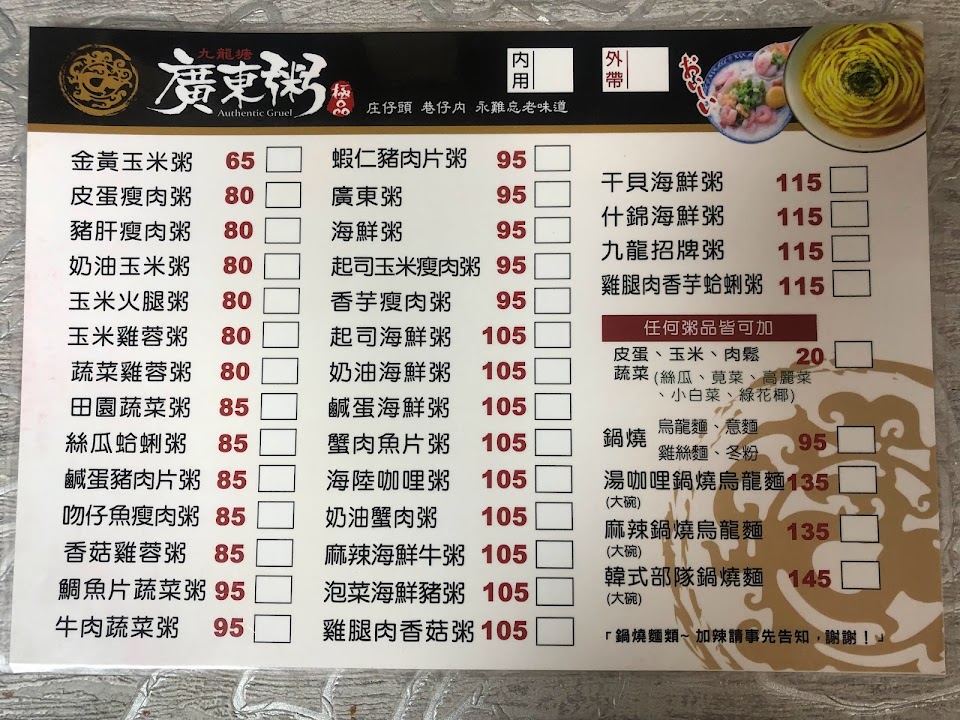 九龍塘
廣東粥
Authentic Gruel
極品
庄仔頭 巷仔內 永難忘老味道
內用
外帶
おいしい
金黃玉米粥 65
皮蛋瘦肉粥 80
豬肝瘦肉粥 80
奶油玉米粥 80
玉米火腿粥 80
玉米雞蓉粥 80
蔬菜雞蓉粥 80
田園蔬菜粥 85
絲瓜蛤蜊粥 85
鹹蛋豬肉片粥 85
吻仔魚瘦肉粥 85
香菇雞蓉粥 85
鯛魚片蔬菜粥 95
牛肉蔬菜粥 95
蝦仁豬肉片粥 95
廣東粥 95
海鮮粥 95
起司玉米瘦肉粥 95
香芋瘦肉粥 95
起司海鮮粥 105
奶油海鮮粥 105
鹹蛋海鮮粥 105
蟹肉魚片粥 105
海陸咖哩粥 105
奶油蟹肉粥 105
麻辣海鮮牛粥 105
泡菜海鮮豬粥 105
雞腿肉香菇粥 105
干貝海鮮粥 115
什錦海鮮粥 115
九龍招牌粥 115
雞腿肉香芋蛤蜊粥 115
任何粥品皆可加
皮蛋、玉米、肉鬆 20
蔬菜(絲瓜、莧菜、高麗菜
、小白菜、綠花椰)
鍋燒 烏龍麵、意麵
雞絲麵、冬粉 95
湯咖哩鍋燒烏龍麵 135
(大碗)
麻辣鍋燒烏龍麵 135
(大碗)
韓式部隊鍋燒麵 145
(大碗)
「鍋燒麵類~ 加辣請事先告知，謝謝！」